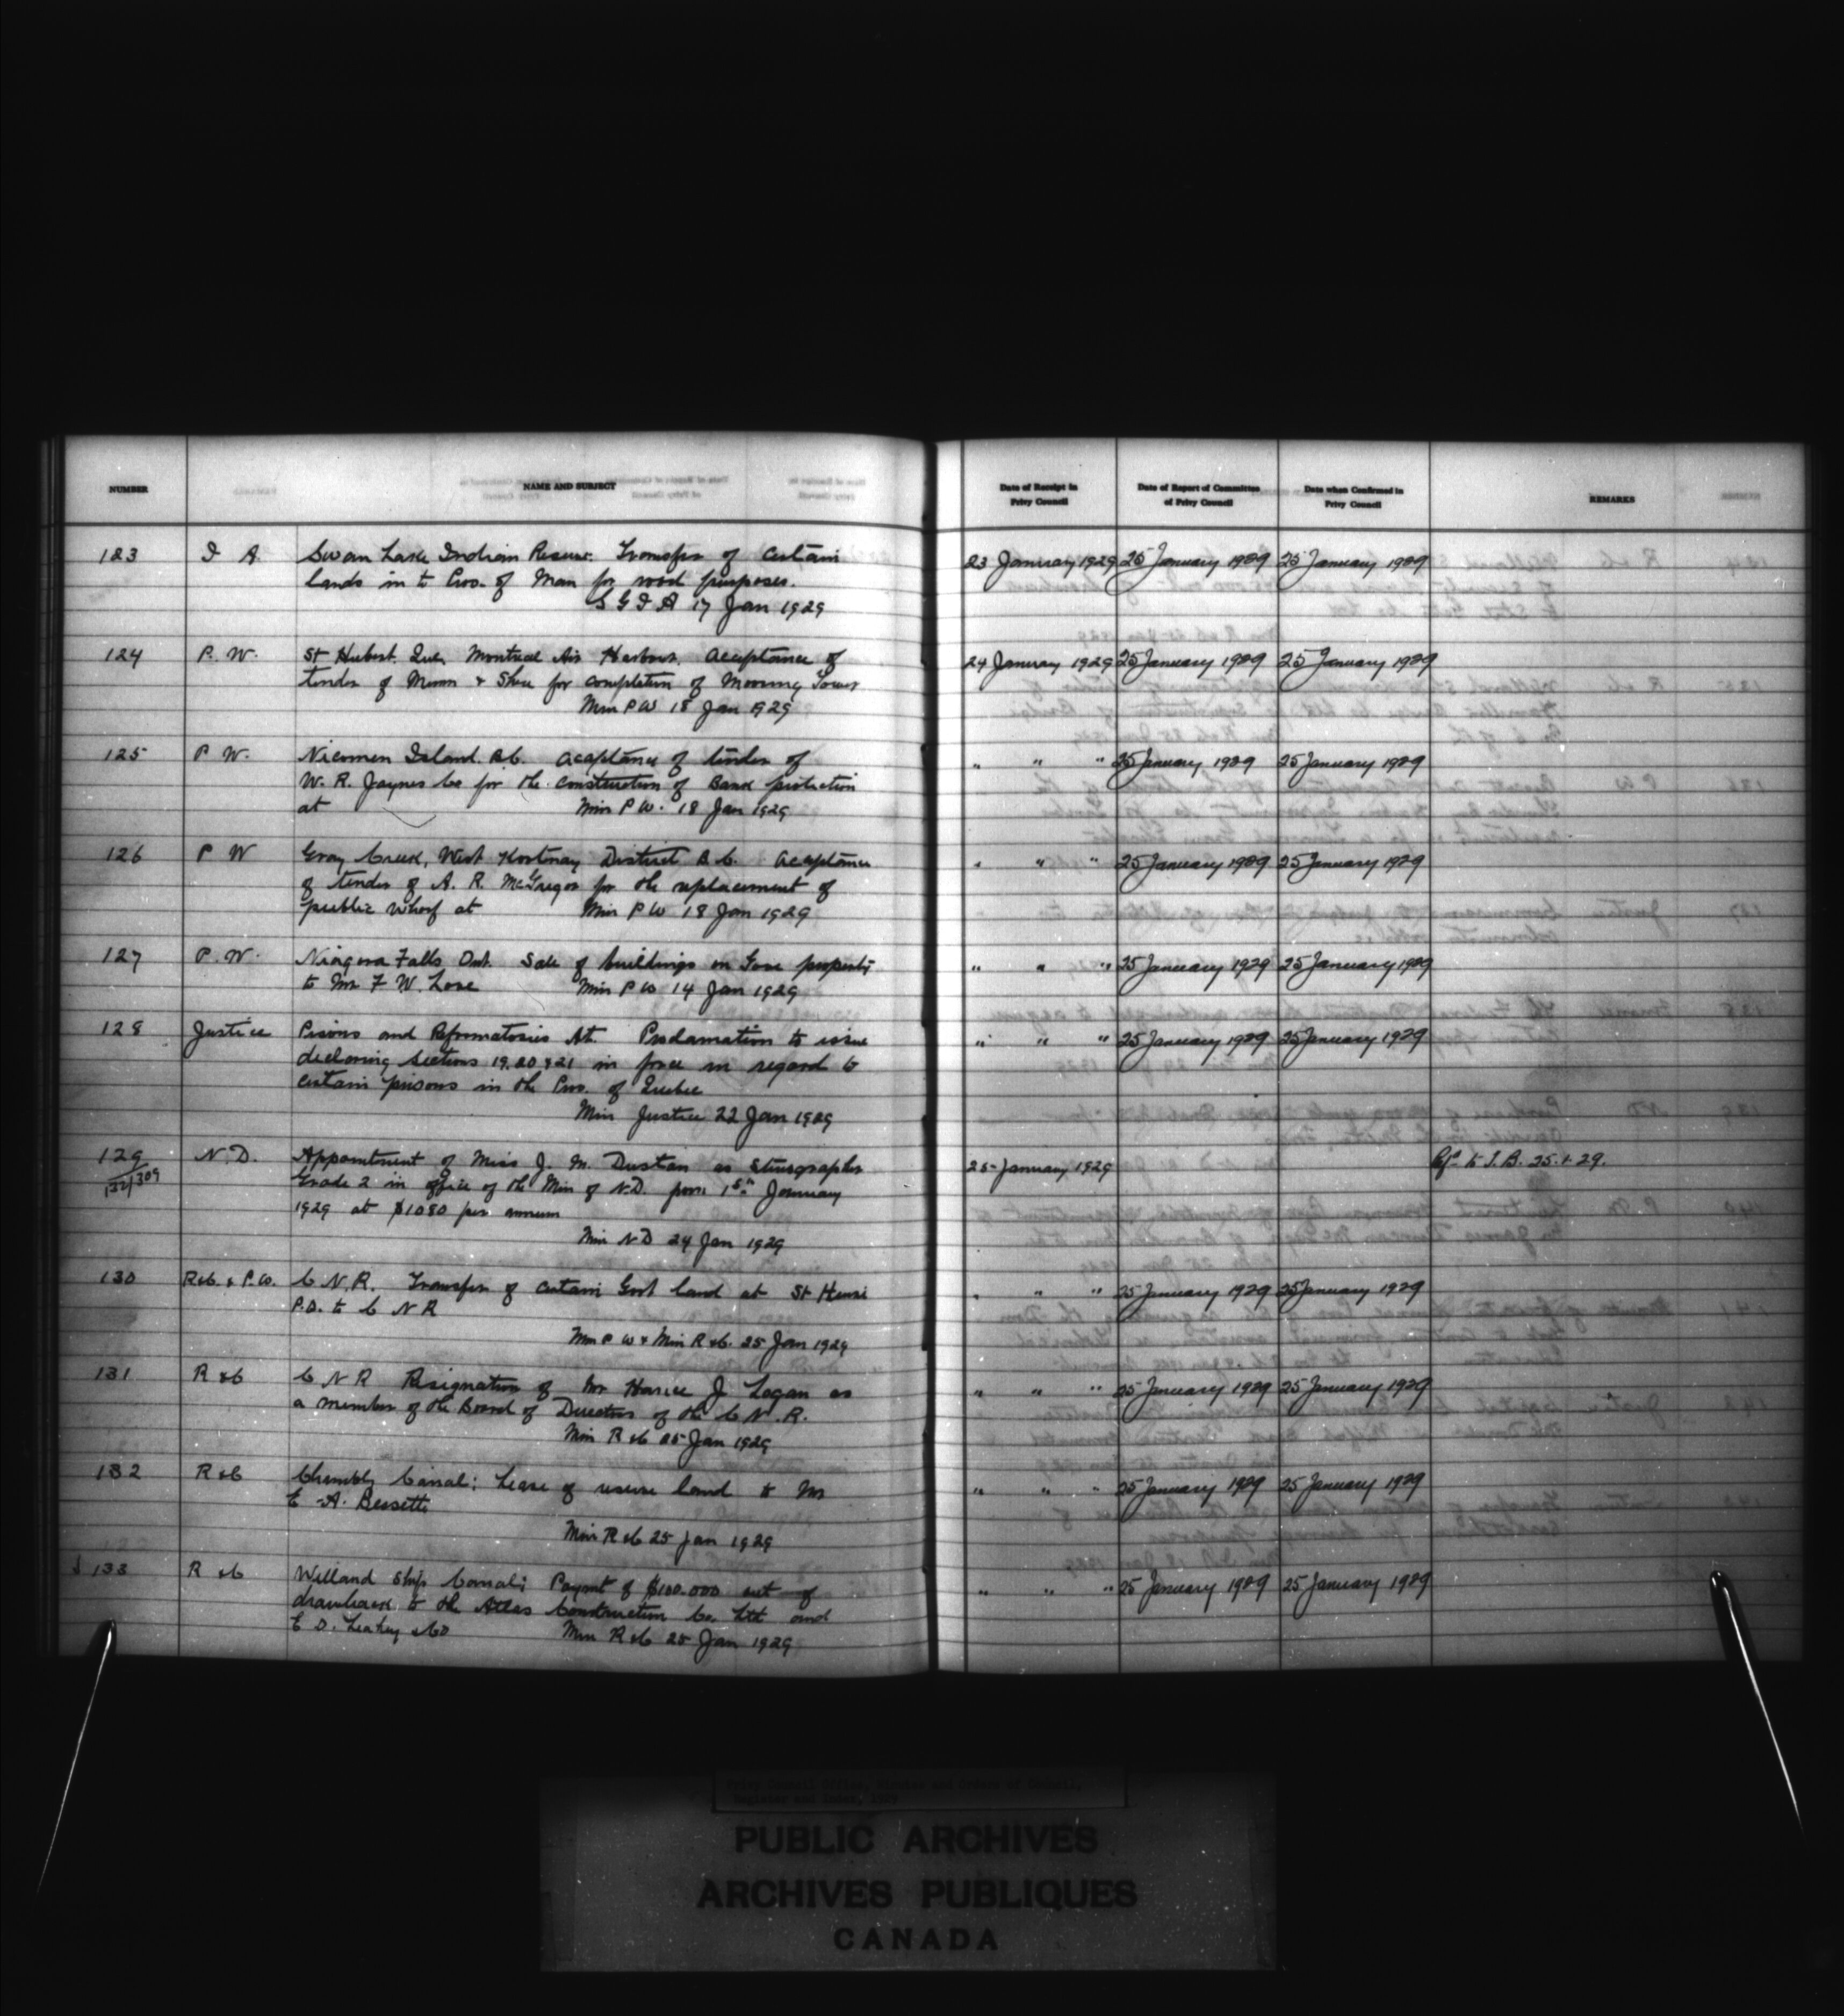 NUMBER NAME AND SUBJECT Date of Receipt in Privy Council Date of Report of Committee of Privy Council Date when Confirmed in Privy Council REMARKS
123 I A. Swan Lake Indian Reserve. Transfer of certain 23 January 1929 25 January 1929 25 January 1929
lands in to Prov. of Man for road purposes.
S G I A 17 Jan 1929
124 P. W. St Hubert. Que. Montreal Air Harbour. Acceptance of 24 January 1929 25 January 1929 25 January 1929
tender of & Shea for completion of Mooring Tower
Min P W 18 Jan 1929
125 P W. Nicomen Island. B.C. Acceptance of tender of " " " 25 January 1929 25 January 1929
W. R. Jaynes Co for the construction of Bank protection
at Min P W. 18 Jan 1929
126 P W Gray Creek, West Kootenay District B.C. Acceptance " " " 25 January 1929 25 January 1929
of tender of A. R. McGregor for the replacement of
public wharf at Min P W 18 Jan 1929
127 P. W. Niagara Falls Ont. Sale of buildings on property " " " 25 January 1929 25 January 1929
to Mr F W. Min P W 14 Jan 1929
128 Justice Prisons and Reformatories Act. Proclamation to issue " " " 25 January 1929 25 January 1929
declaring sections 19, 20 & 21 in force in regard to
certain prisons in the Prov. of Quebec
Min Justice 22 Jan 1929
129 N. D. Appointment of Miss J. M. Dustan as Stenographer 25 January 1929 Ref'd to T.B. 25.1.29.
132/309 Grade 2 in office of the Min of N.D. from 1st January
1929 at $1080 per annum
Min N D 24 Jan 1929
130 R&C. & P.W. C. N. R. Transfer of certain Govt land at St Henri " " " 25 January 1929 25 January 1929
P.Q. to C N R
Min P W & Min R &C. 25 Jan 1929
131 R &C C N R Resignation of Mr Hance J Logan as " " " 25 January 1929 25 January 1929
a member of the Board of Directors of the C N. R.
Min R &C 25 Jan 1929
132 R &C Chambly Canal: Lease of reserve land to Mr " " " 25 January 1929 25 January 1929
E A. Bessette
Min R &C 25 Jan 1929
133 R &C Welland Ship Canal: Paymt of $100.000 out of " " " 25 January 1929 25 January 1929
drawback to the Atlas Construction Co. Ltd and
E D. Leahey & Co Min R &C 25 Jan 1929
Privy Council Office, Minutes and Orders in Council,
Register and Index, 1929
PUBLIC ARCHIVES
ARCHIVES PUBLIQUES
CANADA